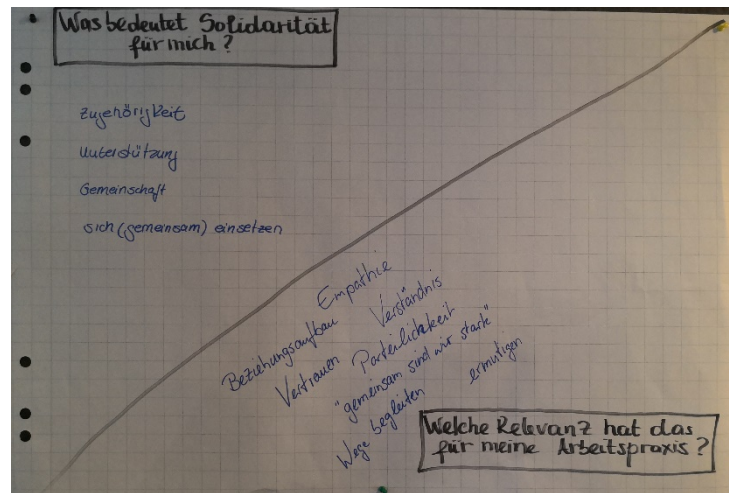 Was bedeutet Solidarität
für mich?
Zugehörigkeit
Unterstützung
Gemeinschaft
sich (gemeinsam) einsetzen
Empathie
Beziehungsaufbau Verständnis
Vertrauen Parteilichkeit
"gemeinsam sind wir stark"
Wege begleiten ermutigen
Welche Relevanz hat das
für meine Arbeitspraxis?